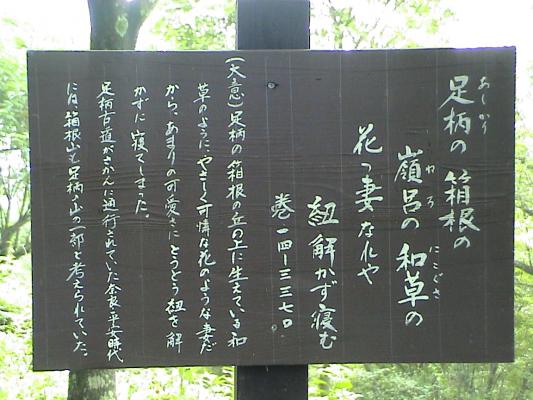 あしがり
足柄の箱根の
ねろ にこぐさ
嶺呂の和草の
花つ妻なれや
紐解かず寝む
巻一四ー三三七〇
(大意)足柄の箱根の丘の上に生えている和
草のように、やさしく可憐な花のような妻だ
から、あまりの可愛さにとうとう紐を解
かずに寝てしまった。
足柄古道がさかんに通行されていた奈良・平安時代
には箱根山も足柄の山の一部と考えられていた。